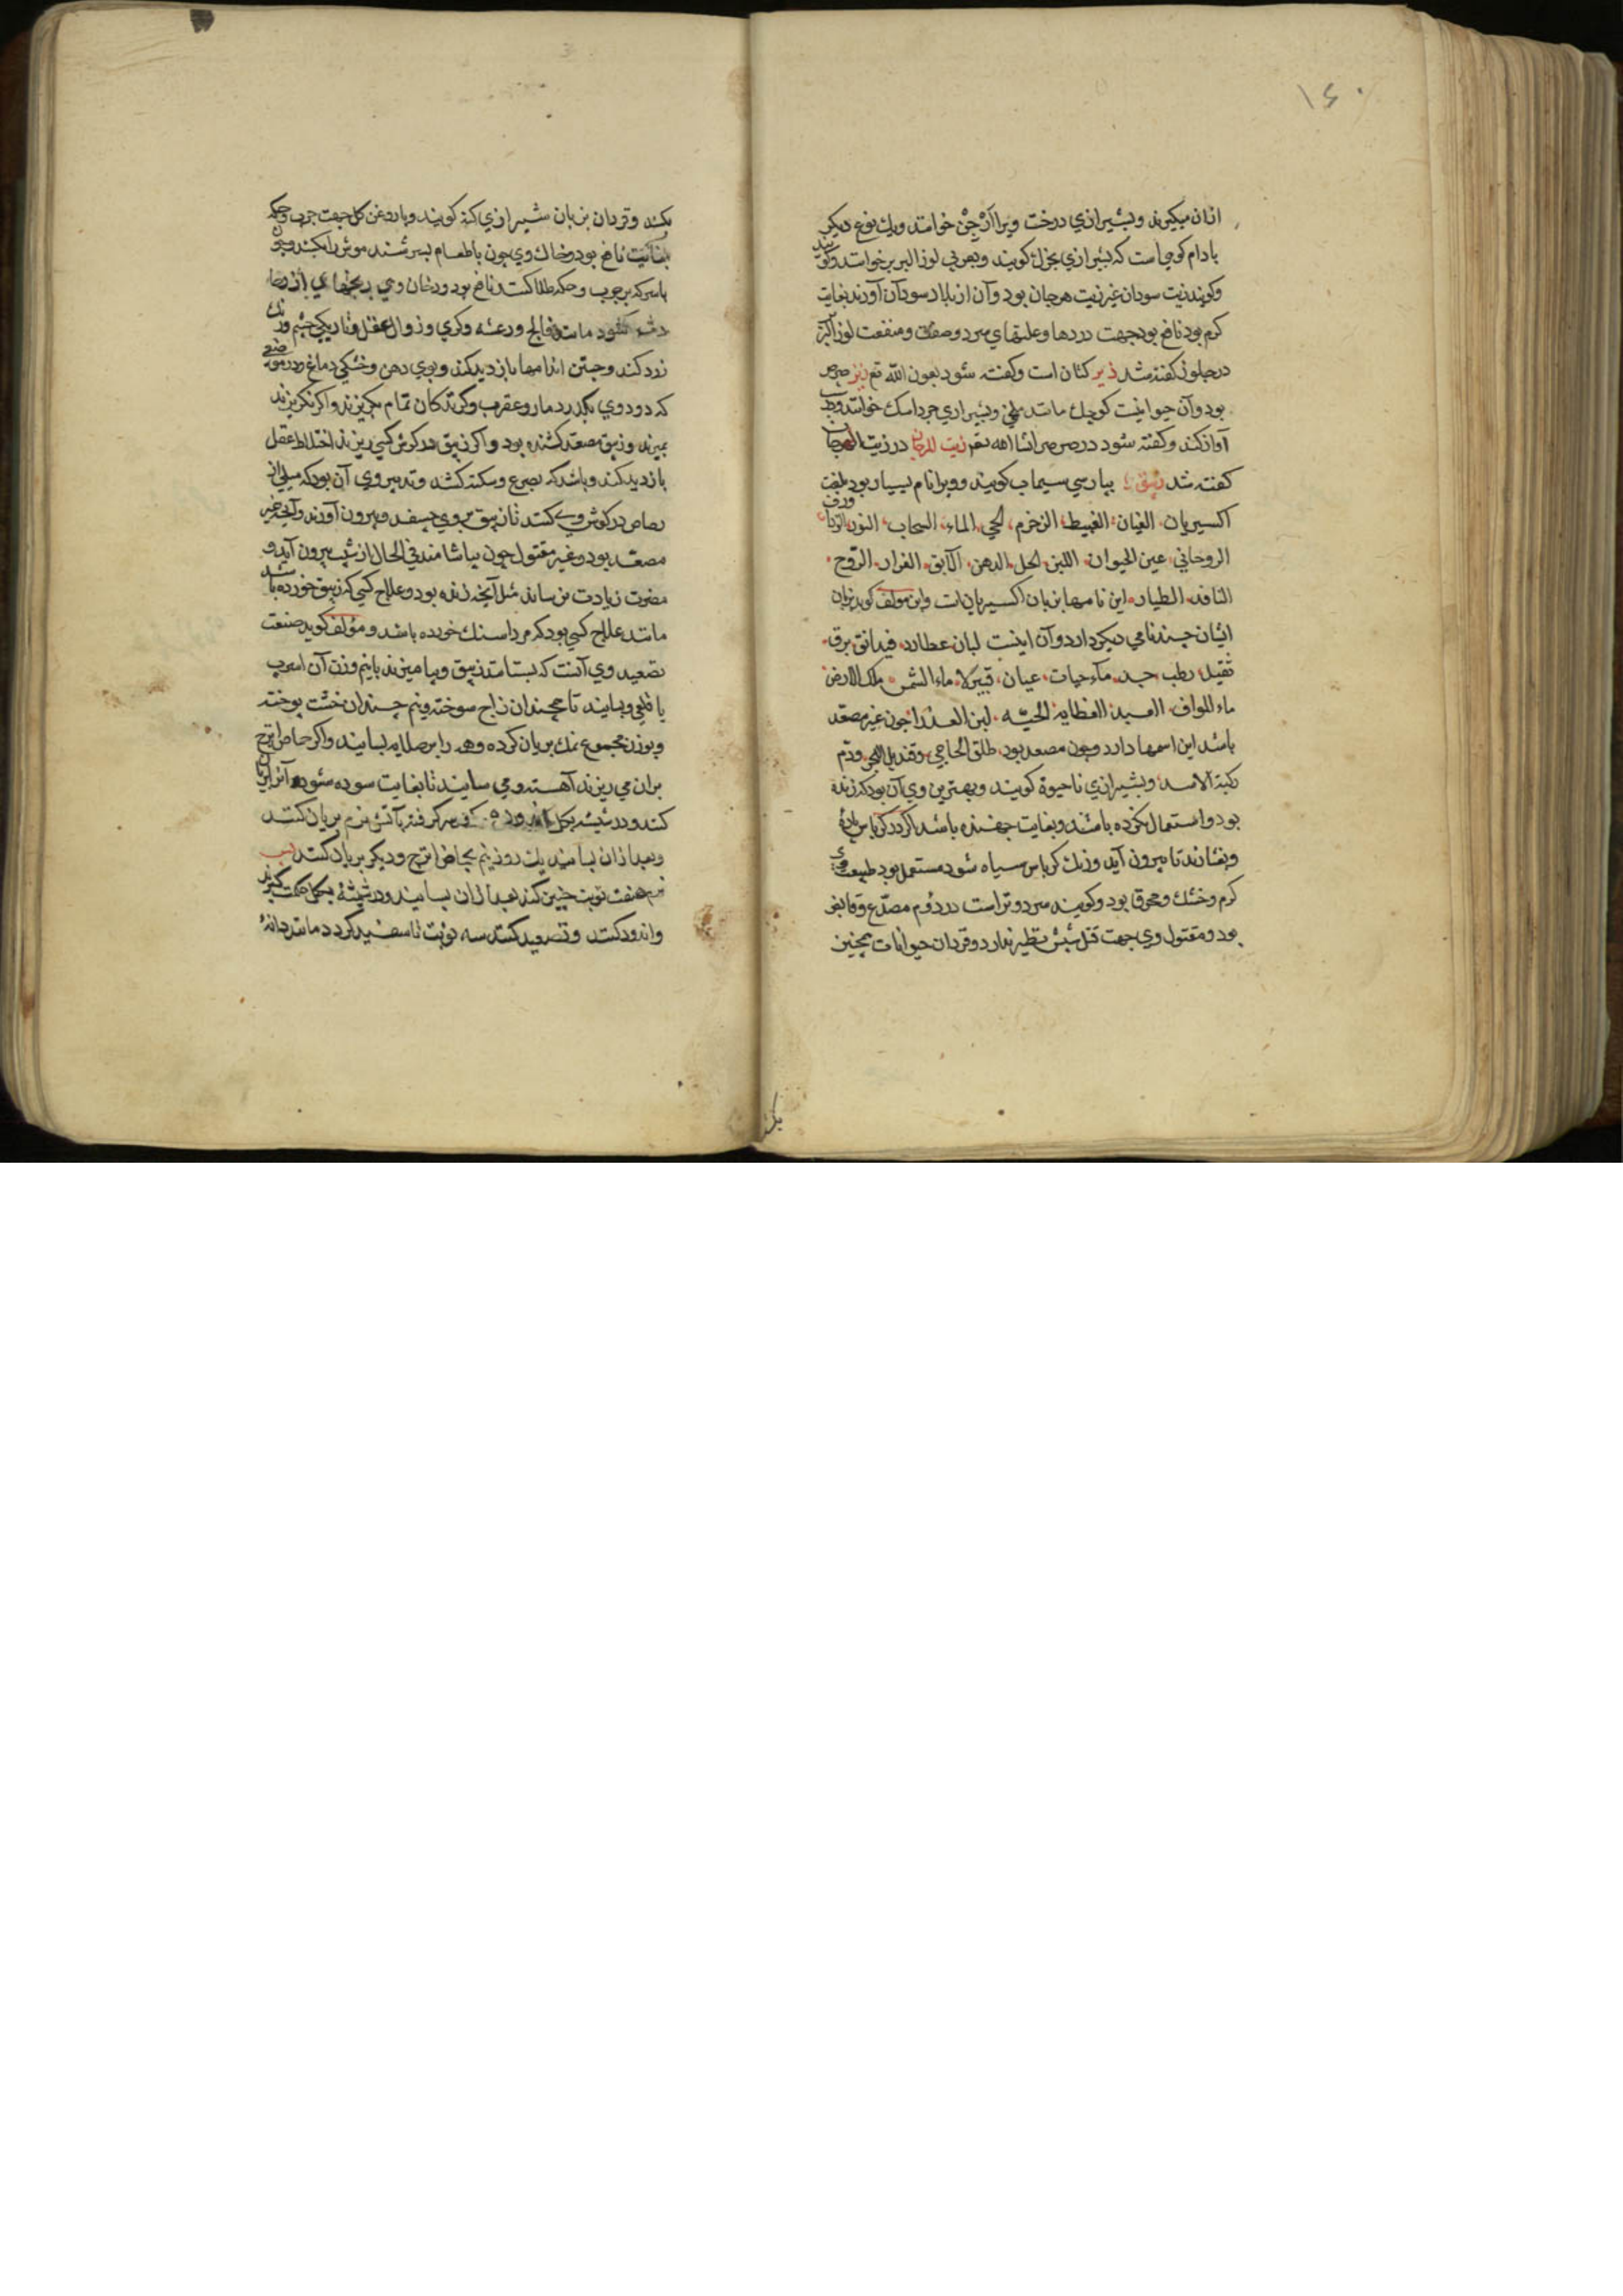 ۱۶۰
ازان میکیرند وبشیرازي درخت ویرا ارجن خوانند ویک نوع دیکر
بادام کوهی است که بشیرازي بخرک کویند وبعربی لوز البربر خوانند وکویند
وکویند زیت سودان غیر زیت هرجان بود وآن از بلاد سودان آورند بغایت
کرم بود نافع بود جهت دردها وعلتهاي سرد وصفت ومنفعت لوز البربر
در جلوز کفته شد زیر کتان است وکفته شود بعون الله تع زیز صرصر
بود وآن حیوانیست کوچک مانند ملخ وبشیرازي جرداسک خوانند وشب
آواز کند وکفته شود در صرصر انشا الله تعم زیت الهرجان در زیت الهرجان
کفته شد زیبق بپارسي سیماب کویند وویرا نام بسیار بود بلغت
اکسیریان الغیان الغبیط الزخرم الحي الماء السحاب النور الزاوق
الروحاني عین الحیوان اللبن الخل الدهن الآبق الفرار الروح
النافذ الطیار این نامها بزبان اکسیریان است واین مولف کوید بزبان
ایشان چند نامي دیکر دارد وآن اینست لبان عطارد فیدانق برق
ثقیل رطب جید ماء حیات عیان قیبرلا ماء الشمس ملک الارض
ماء اللواف العبید الغطایه الحیّه لبن العذرا چون غیر مصعد
باشد این اسمها دارد وچون مصعد بود طلق الحاجي وقندیل البحر ودم
رکبة الاسد وبشیرازي ناحیوة کویند وبهترین وي آن بود که زنده
بود واستعمال نکرده باشند وبغایت جهنده باشد اکر در کرباس پاره
وبفشانند تا بیرون آید ورنک کرباس سیاه شود مستعمل بود طبیعت وي
کرم وخشک ومحرق بود وکویند سرد وتر است در دوم مصدع وقابض
بود ومقتول وي جهت قتل شپش نظیر ندارد وقردان حیوانات همچنین
بکشد وقردان بزبان شیرازي کنه کویند وباروغن کل جهت جرب وحکه
بغایت نافع بود وخاک وي چون باطعام بسرشند موش را بکشد وچون
باسرکه برجرب وحکه طلا کنند نافع بود ودخان وي رنجهاي
شود مانند فالج ورعشه وکري وزوال عقل وتاریکي چشم ورنک
زرد کند وجستن اندامها بازدید کند وبوي دهن وخشکي دماغ ودر موضعي
که دود وي بکذرد مار وعقرب وکزندکان تمام بکریزند واکر نکریزند
بمیرند وزیبق مصعد کشنده بود واکر زیبق در کوش کسي ریزند اختلاط عقل
بازدید کند وباشد که بصرع وسکته کشد وتدبیر وي آن بود که میلي از
رصاص در کوش وي کنند تا زیبق بروي چسفد وبیرون آورند وآنچه غیر
مصعد بود وغیر مقتول چون بیاشامند في الحال از شیب بیرون آید و
مضرت زیادت نرساند مثل آنچه زنده بود وعلاج کسي که زیبق خورده باشد
مانند علاج کسي بود که مرداسنک خورده باشد ومولف کوید صنعت
تصعید وي آنست که بستانند زیبق وبیامیزند بانیم وزن آن اسرب
یا قلعي وبسایند تا همچندان زاج سوخته ونیم چندان خشت پوخته
وبوزن مجموع نمک بریان کرده وهمه را برصلایه بسایند واکر حماض اترج
بران مي ریزند آهسته ومي سایند تا بغایت سوده شود آنرا بریان
کنند ودر شیشه بکل اندوده سر کرفته بآتش نرم بریان کنند
وبعد ازان بسایند یک روز نیم بحماض اترج ودیکر بریان کنند
نرم هفت نوبت چنین کنند بعد ازان بسایند ودر شیشه بکل حکمت کیرند
واندود کنند وتصعید کنند سه نوبت تا سفید کردد مانند دانه
بکشد